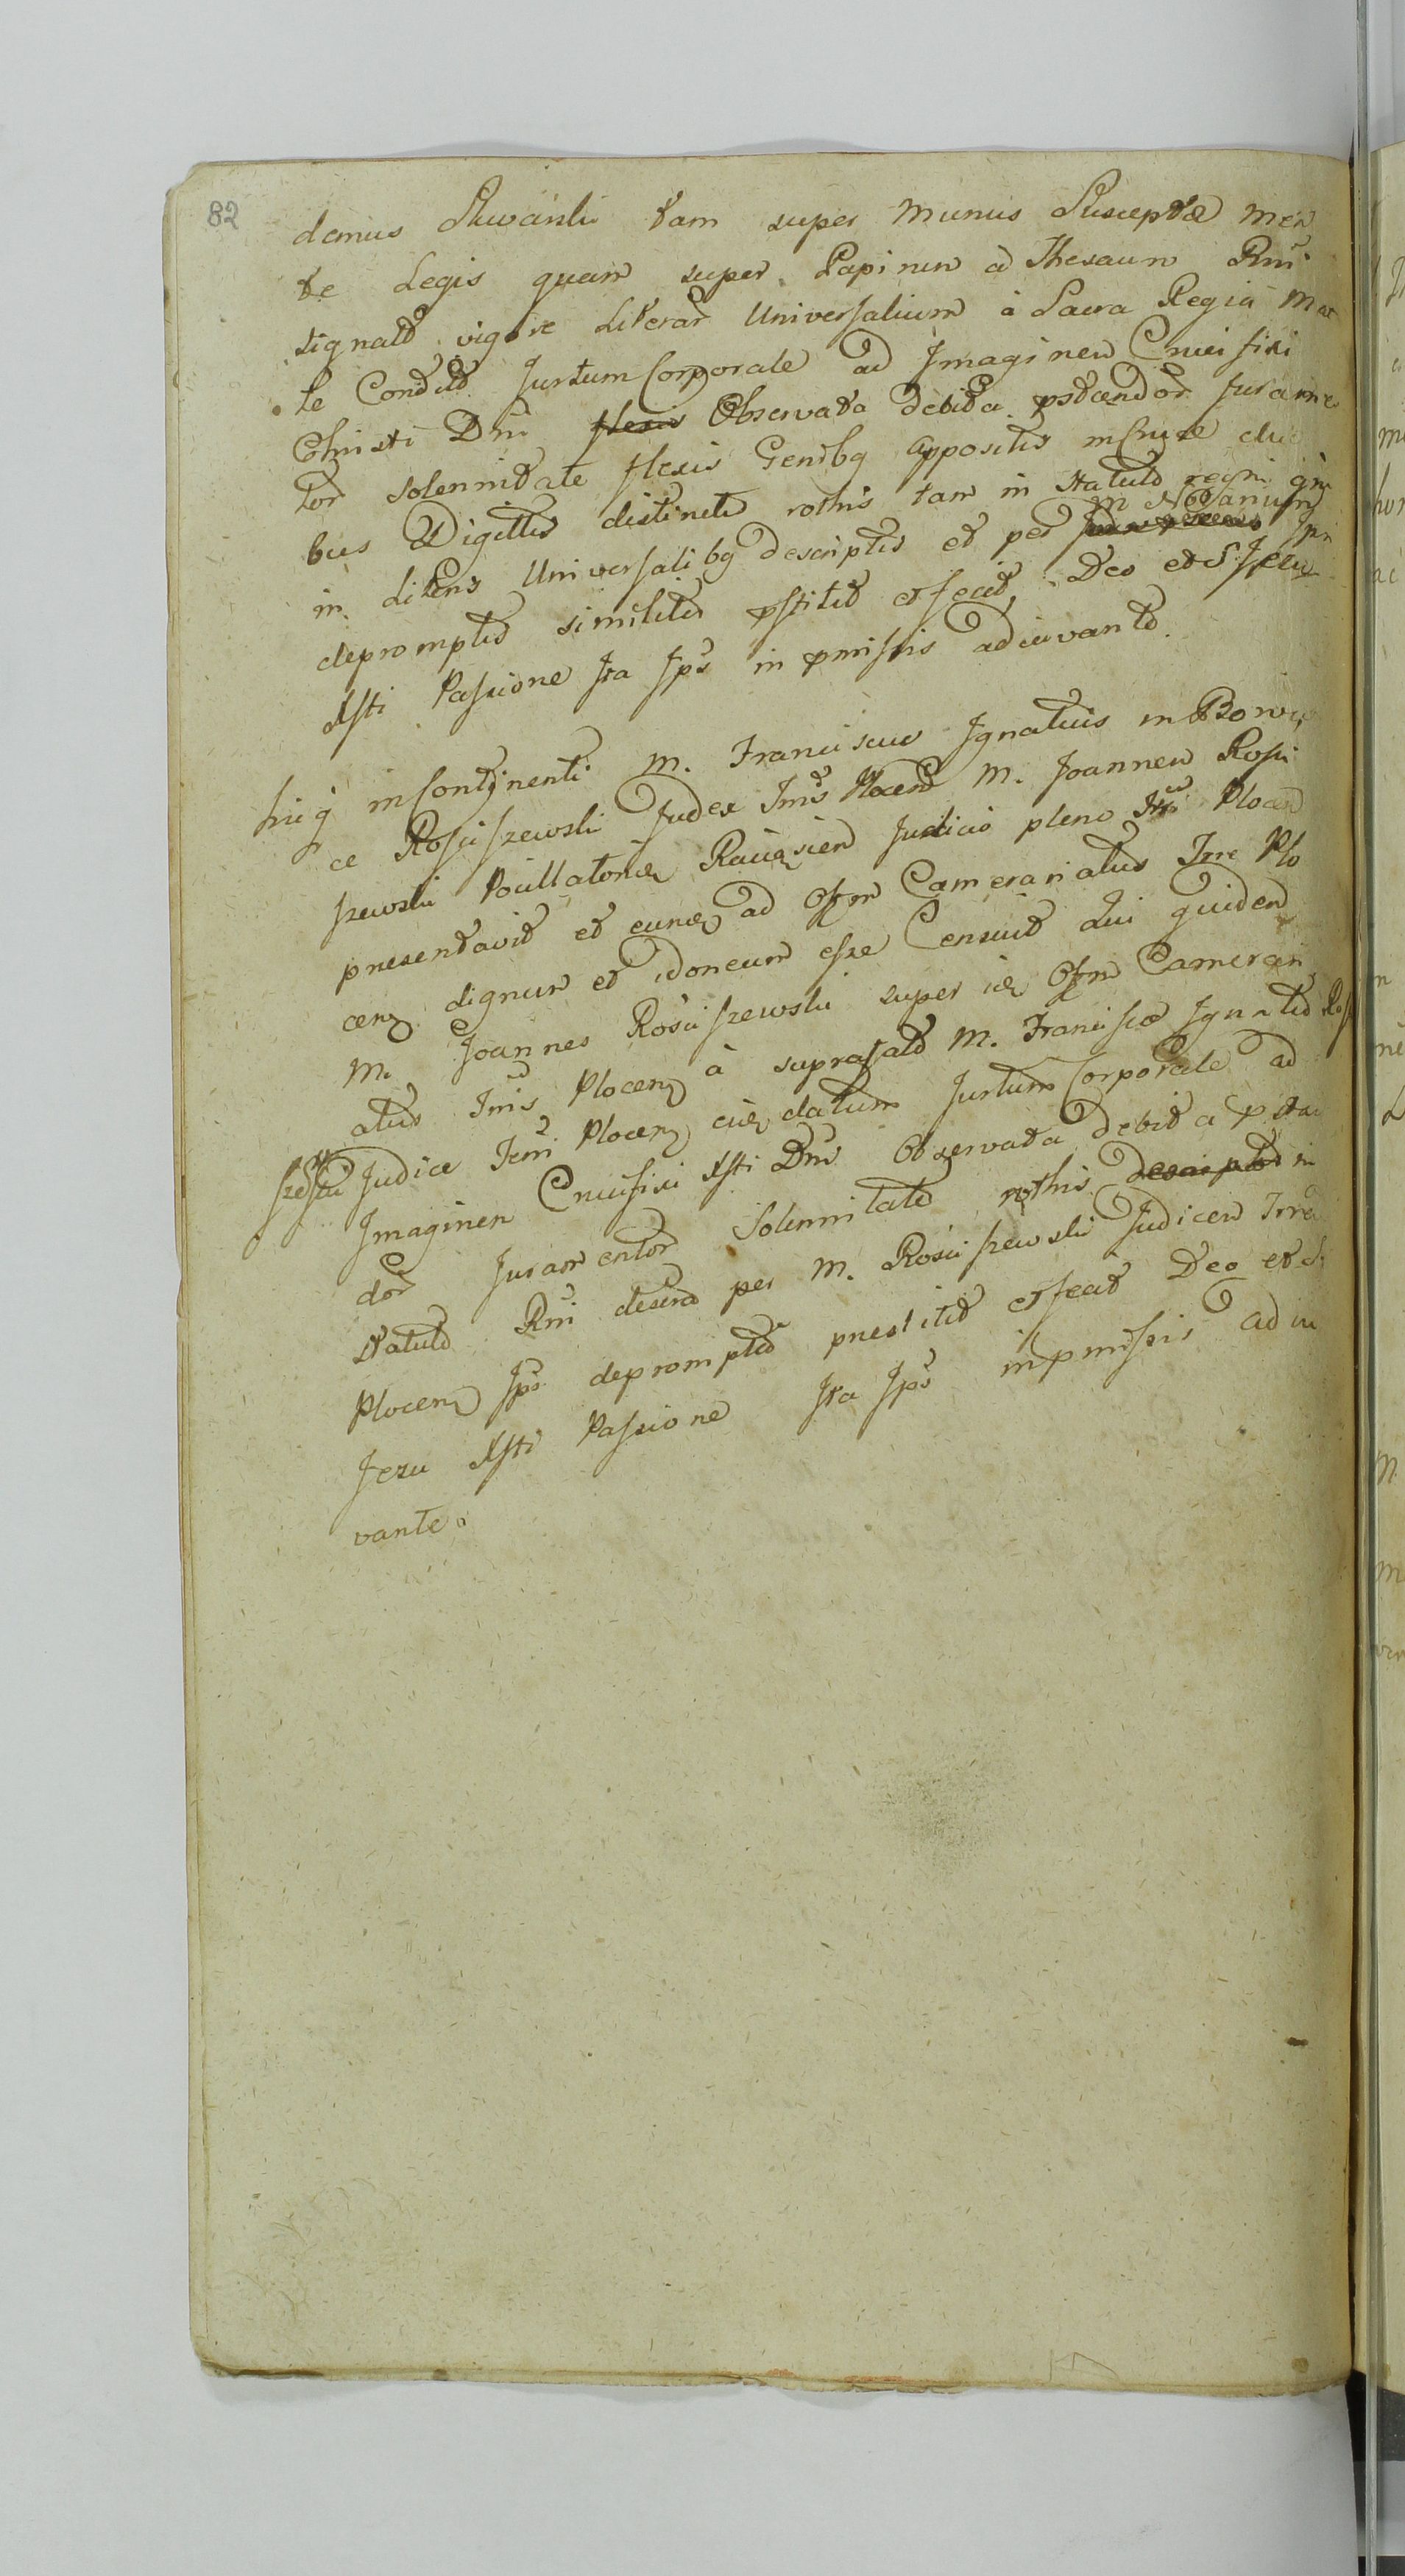 82
demus Skwarski tam super munus Susceptæ men
te Legis quam super Papirum a Thesauro Rni
signatd vigore Literar Universalium à Sacra Regia Ma
te Condit Jurtum Corporale ad Imaginem Crucifixi
Christi Dni flexis Observata debita pstandor jurame
tor solennitate flexis Genibq appositis in Cruce duo
bus Digittis distincte rothis tam in statuto regni qm
in Literis Universalibq descriptis et per M Notarium Jpi
depromptis similiter pstitit et fecit, Deo et S Jezu
Xsti Passione Ita Jps in pmissis adiuvante.
Huiq in Continenti M. Franciscus Ignatius in Borwi
ce Rosciszewski Judex Tris Plocen M. Joannem Rosci
szewski Pocillatorem Raciązien Judicio pleno Tri Plocen
presentavit et eumq ad Offm Camerariatus Trre Plo
cenq dignum et idoneum esse Censuit Qui quidem
M. Joannes Rosciszewski super idq Offm Camerari
atus Tris Plocenq à suprafato M. Francisco Ignatio Ros
szewski Judice Trri Plocenq eiq datum Jurtum Corporale ad
Imaginem Crucifixi Xsti Dni Observata debita pstan
dor Juramentor Solennitate rothis descriptis in
statuto Rni descrip per M. Rosciszewski Judicem Trre
Plocenq Jpi depromptis prestitit et fecit Deo et S
Jezu Xsti Passione Ita Jps in pmissis adiu
vante.